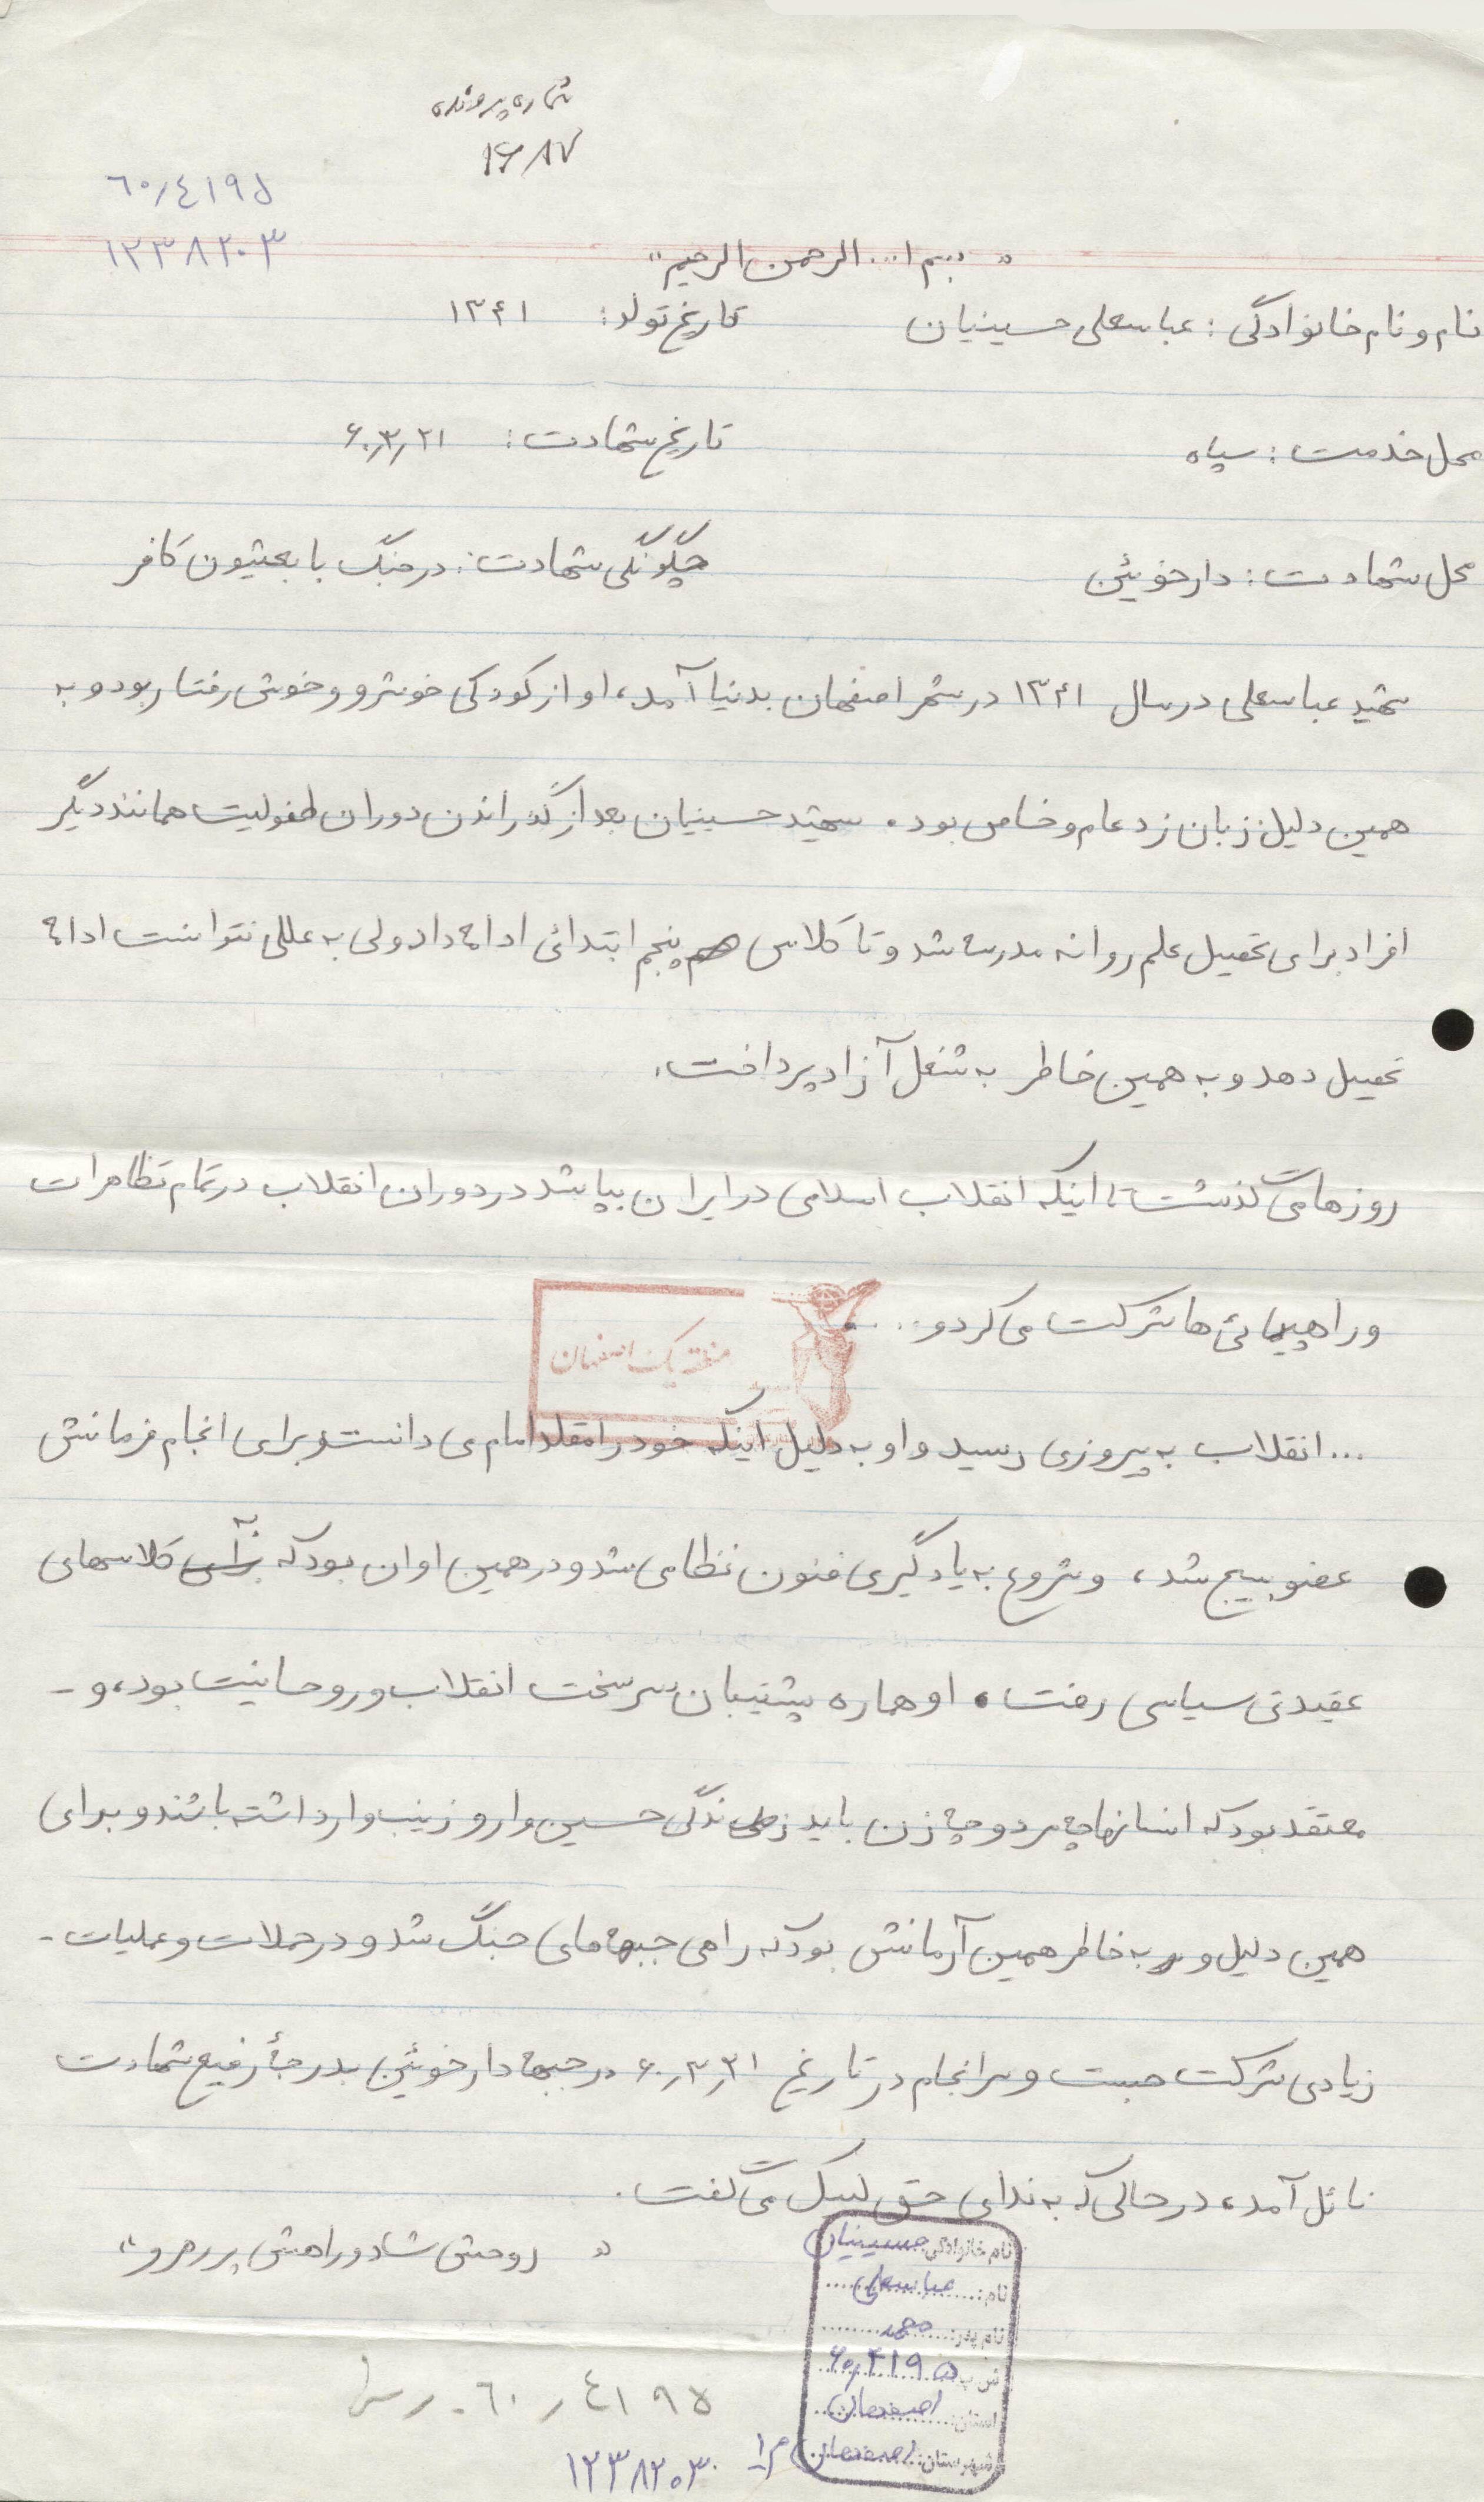 شماره پرونده
۱۶۸۷
۶۰/۴۱۹۵
۱۲۳۸۲۰۳
«بسم ا... الرحمن الرحیم»
نام و نام خانوادگی : عباسعلی حسینیان تاریخ تولد : ۱۳۴۱
محل خدمت : سپاه تاریخ شهادت : ۶۰٫۳٫۲۱
محل شهادت : دارخوئین چگونگی شهادت : در جنگ با بعثیون کافر
شهید عباسعلی در سال ۱۳۴۱ در شهر اصفهان بدنیا آمد، او از کودکی خوشرو و خوش رفتار بود و به
همین دلیل زبان زد عام و خاص بود. شهید حسینیان بعد از گذراندن دوران طفولیت همانند دیگر
افراد برای تحصیل علم روانه مدرسه شد و تا کلاس پنجم ابتدائی ادامه داد ولی به عللی نتوانست ادامه
تحصیل دهد و به همین خاطر به شغل آزاد پرداخت.
روزها می گذشت تا اینکه انقلاب اسلامی در ایران بپا شد در دوران انقلاب در تمام تظاهرات
و راهپیمائی ها شرکت می کرد و ...
منطقه یک اصفهان
... انقلاب به پیروزی رسید و او به دلیل اینکه خود را مقلد امام می دانست و برای انجام فرمانش
عضو بسیج شد، و شروع به یادگیری فنون نظامی شد و در همین اوان بود که به کلاسهای
عقیدتی سیاسی رفت. او هماره پشتیبان سرسخت انقلاب و روحانیت بود، و -
معتقد بود که انسانها چه مرد و چه زن باید زندگی حسین وار و زینب وار داشته باشند و برای
همین دلیل و به خاطر همین آرمانش بود که راهی جبهه های جنگ شد و در حملات و عملیات -
زیادی شرکت جست و سرانجام در تاریخ ۶۰٫۳٫۲۱ در جبهه دارخوئین بدرجهٔ رفیع شهادت
نائل آمد، در حالی که به ندای حق لبیک می گفت.
« روحش شاد و راهش پر رهرو»
نام خانوادگی: حسینیان
نام: عباسعلی
نام پدر: محمد
ش پ ۶۰٫۴۱۹۵
استان: اصفهان
شهرستان: اصفهان
۴۱۹۵ / ۶۰
۱۲۳۸۲۰۳